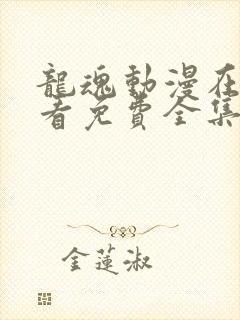 龍魂動漫在
看免費全集
金蓮淑